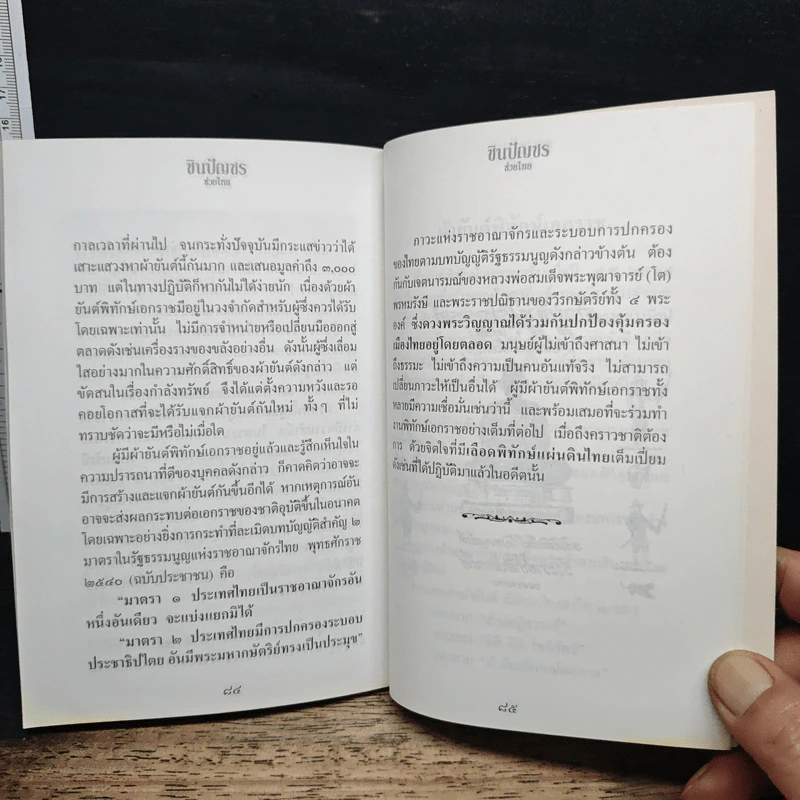 ชินปัญชร
ช่วยไทย
กาลเวลาที่ผ่านไป จนกระทั่งปัจจุบันมีกระแสข่าวว่าได้
เสาะแสวงหาผ้ายันต์นี้กันมาก และเสนอมูลค่าถึง ๓,๐๐๐
บาท แต่ในทางปฏิบัติก็หากันไม่ได้ง่ายนัก เนื่องด้วยผ้า
ยันต์พิทักษ์เอกราชมีอยู่ในวงจำกัดสำหรับผู้ซึ่งควรได้รับ
โดยเฉพาะเท่านั้น ไม่มีการจำหน่ายหรือเปลี่ยนมือออกสู่
ตลาดดังเช่นเครื่องรางของขลังอย่างอื่น ดังนั้นผู้ซึ่งเลื่อม
ใสอย่างมากในความศักดิ์สิทธิ์ของผ้ายันต์ดังกล่าว แต่
ขัดสนในเรื่องกำลังทรัพย์ จึงได้แต่ตั้งความหวังและรอ
คอยโอกาสที่จะได้รับแจกผ้ายันต์กันใหม่ ทั้งๆ ที่ไม่
ทราบชัดว่าจะมีหรือไม่เมื่อใด
ผู้มีผ้ายันต์พิทักษ์เอกราชอยู่แล้วและรู้สึกเห็นใจใน
ความปรารถนาที่ดีของบุคคลดังกล่าว ก็คาดคิดว่าอาจจะ
มีการสร้างและแจกผ้ายันต์กันขึ้นอีกได้ หากเหตุการณ์อัน
อาจจะส่งผลกระทบต่อเอกราชของชาติอุบัติขึ้นในอนาคต
โดยเฉพาะอย่างยิ่งการกระทำที่ละเมิดบทบัญญัติสำคัญ ๒
มาตราในรัฐธรรมนูญแห่งราชอาณาจักรไทย พุทธศักราช
๒๕๔๐ (ฉบับประชาชน) คือ
“มาตรา ๑ ประเทศไทยเป็นราชอาณาจักรอัน
หนึ่งอันเดียว จะแบ่งแยกมิได้
“มาตรา ๒ ประเทศไทยมีการปกครองระบอบ
ประชาธิปไตย อันมีพระมหากษัตริย์ทรงเป็นประมุข”
๘๔
ชินปัญชร
ช่วยไทย
ภาวะแห่งราชอาณาจักรและระบอบการปกครอง
ของไทยตามบทบัญญัติรัฐธรรมนูญดังกล่าวข้างต้น ต้อง
กันกับเจตนารมณ์ของหลวงพ่อสมเด็จพระพุฒาจารย์ (โต)
พรหมรังษี และพระราชปณิธานของวีรกษัตริย์ทั้ง ๔ พระ
องค์ ซึ่งดวงพระวิญญาณได้ร่วมกันปกป้องคุ้มครอง
เมืองไทยอยู่โดยตลอด มนุษย์ผู้ไม่เข้าถึงศาสนา ไม่เข้า
ถึงธรรมะ ไม่เข้าถึงความเป็นคนอันแท้จริง ไม่สามารถ
เปลี่ยนภาวะให้เป็นอื่นได้ ผู้มีผ้ายันต์พิทักษ์เอกราชทั้ง
หลายมีความเชื่อมั่นเช่นว่านี้ และพร้อมเสมอที่จะร่วมทำ
งานพิทักษ์เอกราชอย่างเต็มที่ต่อไป เมื่อถึงคราวชาติต้อง
การ ด้วยจิตใจที่มีเลือดพิทักษ์แผ่นดินไทยเต็มเปี่ยม
ดังเช่นที่ได้ปฏิบัติมาแล้วในอดีตนั้น
๘๕
16
17